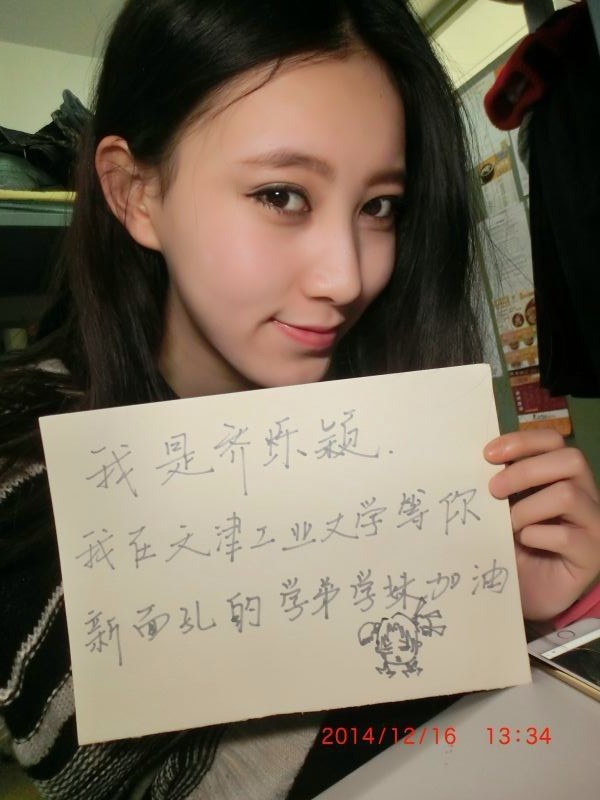 我是齐烁颖.
我在天津工业大学等你
新面孔的学弟学妹加油
2014/12/16 13:34